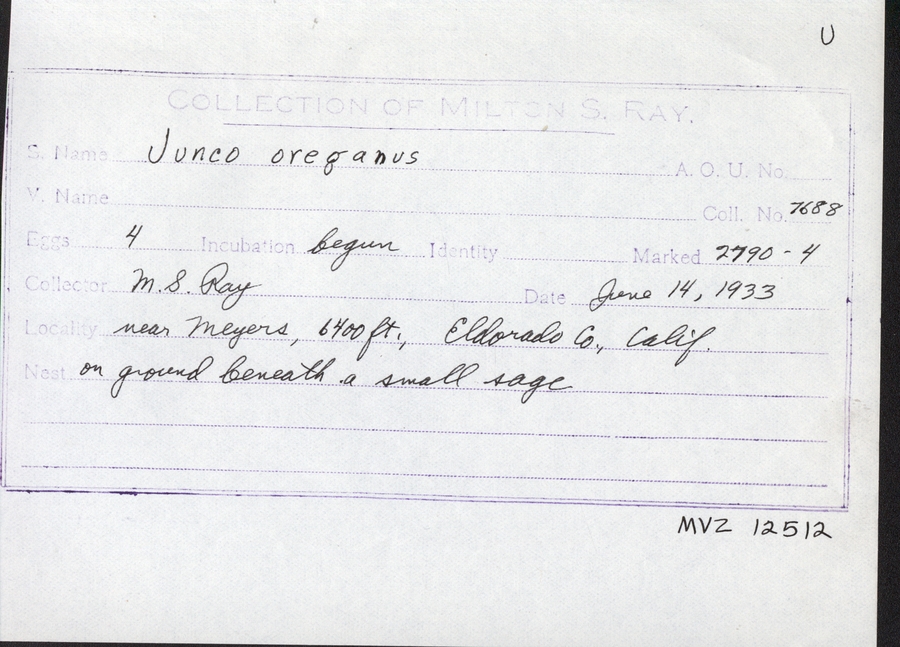 U
COLLECTION OF MILTON S. RAY.
S. Name Junco oreganus A. O. U. No.
V. Name Coll. No. 7688
Eggs 4 Incubation begun Identity Marked 2790-4
Collector M.S. Ray Date June 14, 1933
Locality near Meyers, 6400 ft., Eldorado Co., Calif.
Nest on ground beneath a small sage
MVZ 12512